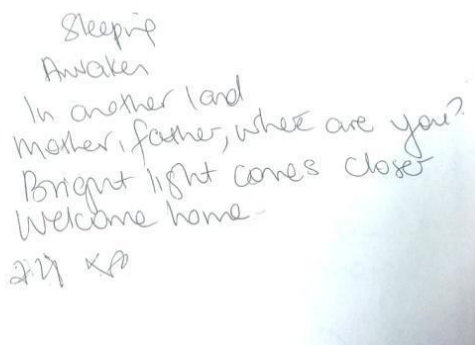 Sleeping
Awaken
In another land
Mother, father, where are you?
Bright light comes closer
Welcome home